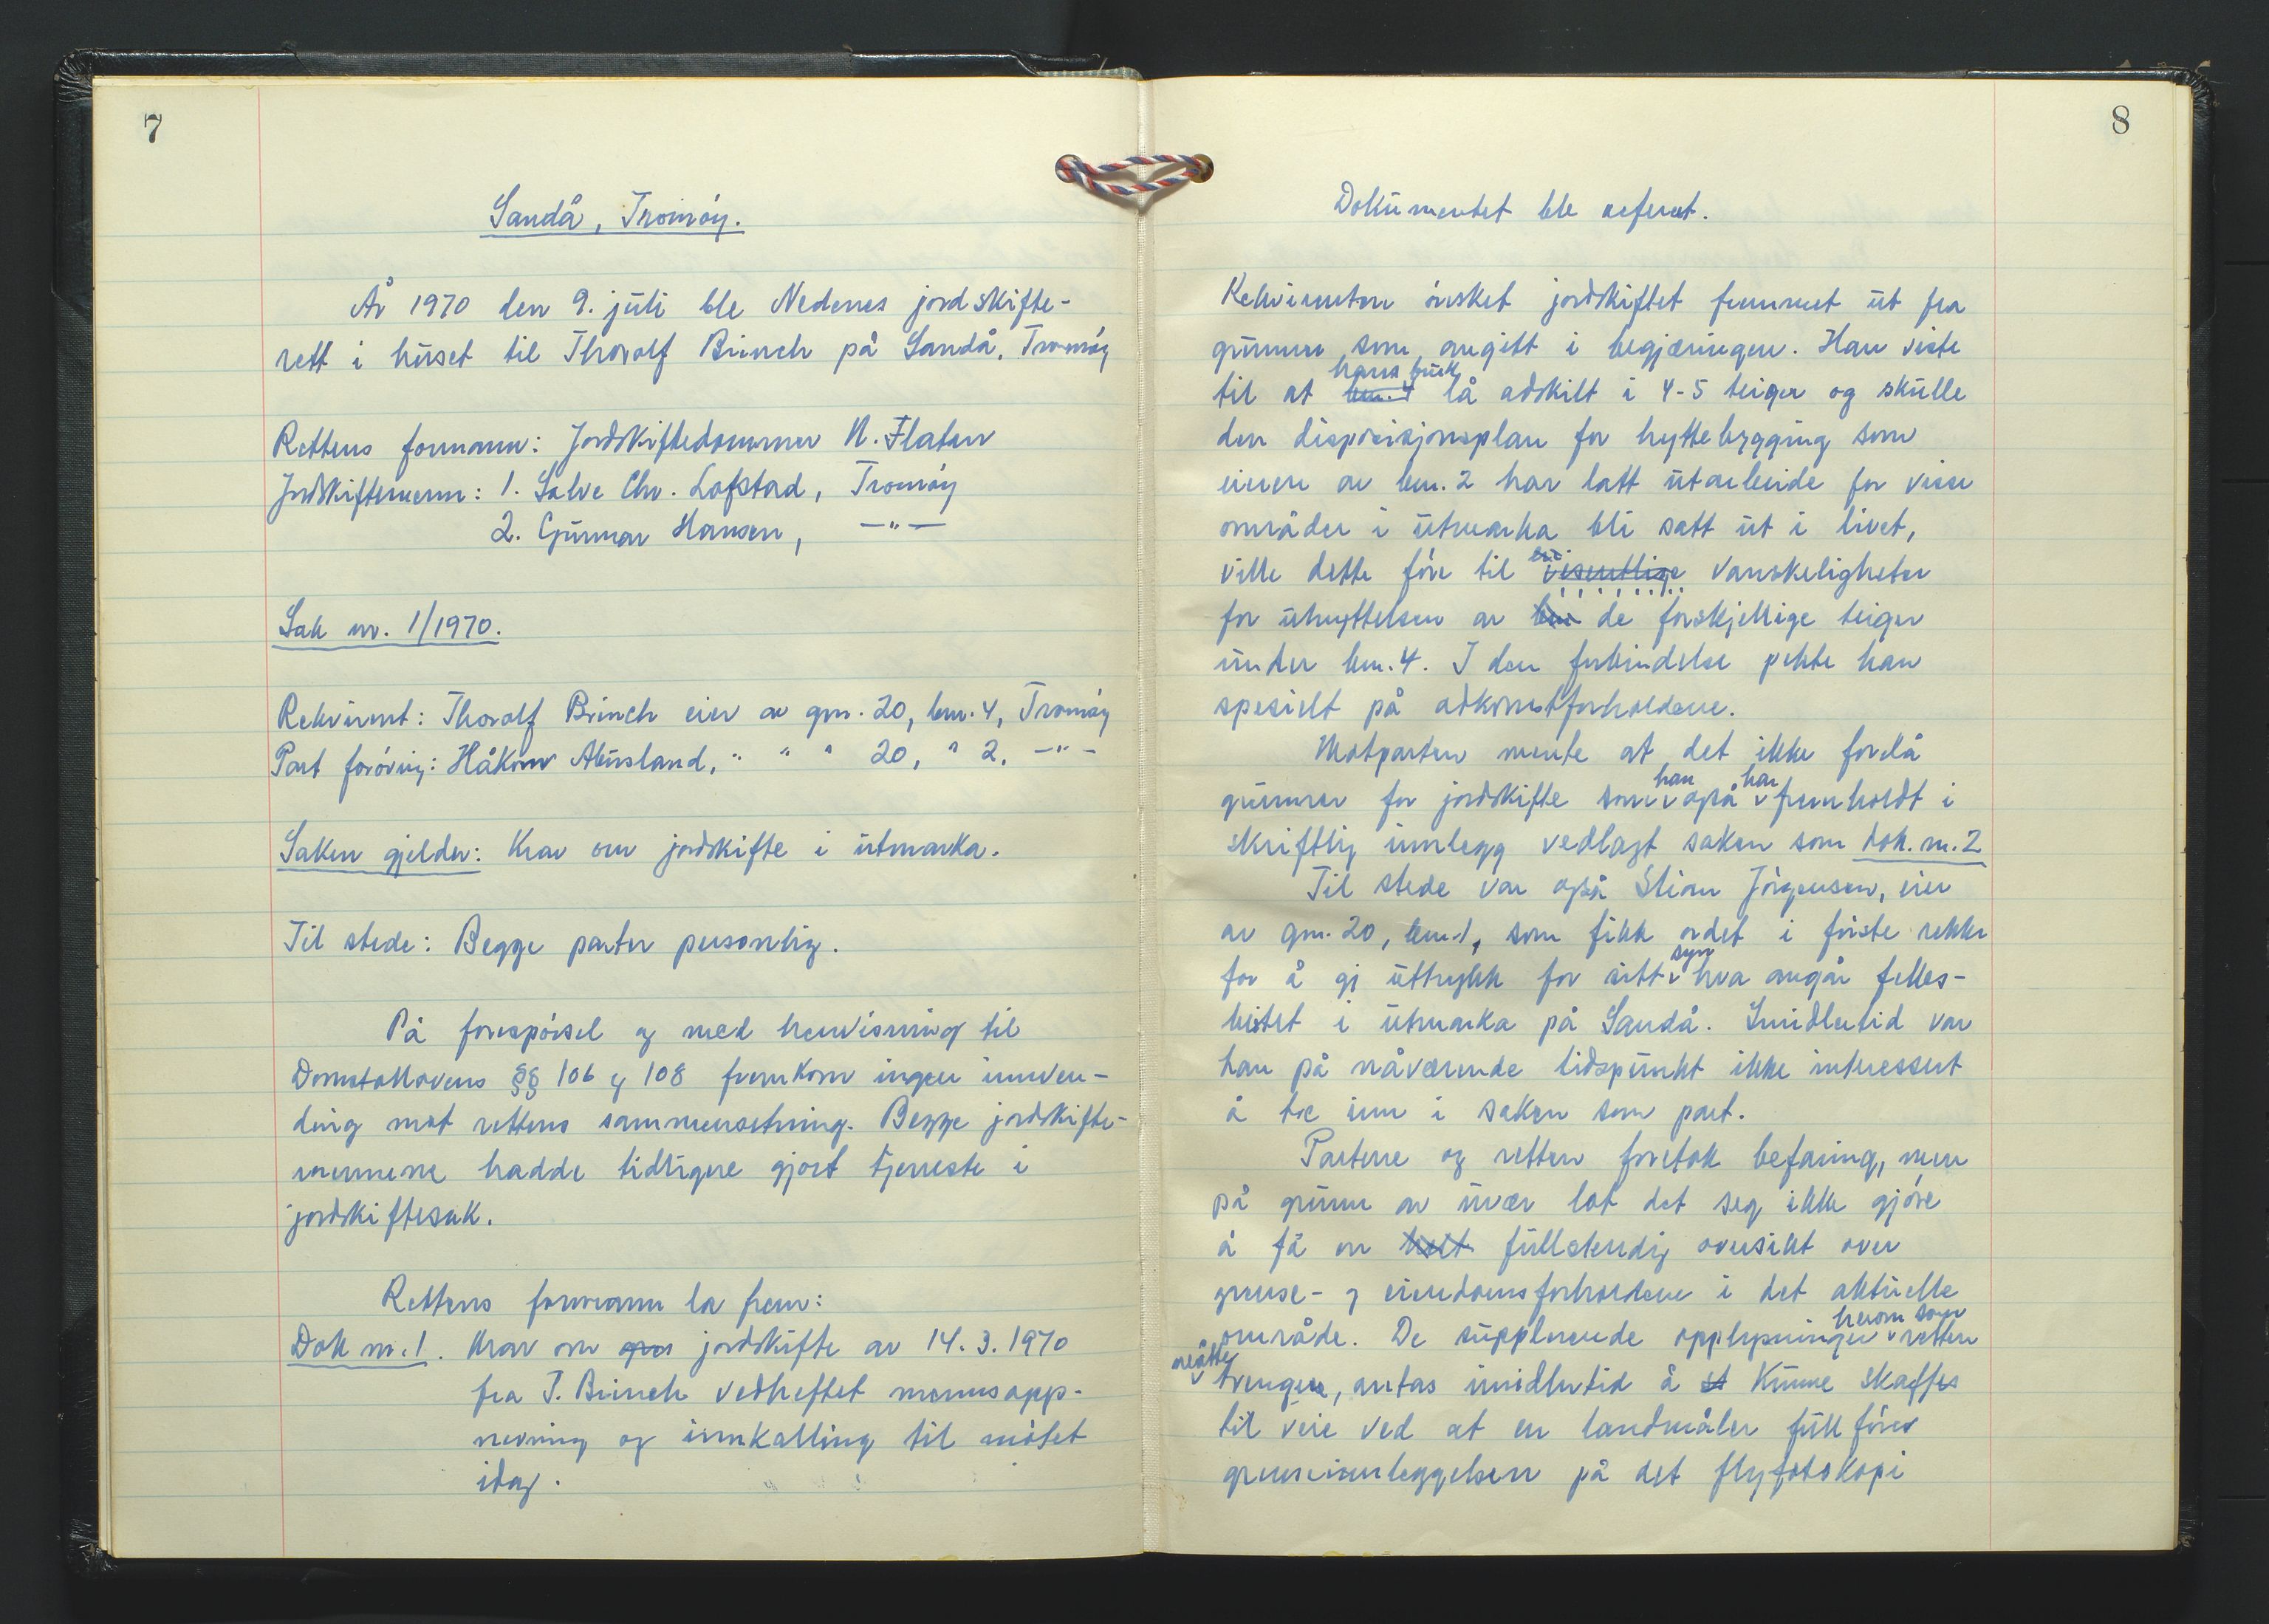 7
Sandå, Tromøy.
År 1970 den 9. juli ble Nedenes jordskifte-
rett i huset til Thorolf Brinch på Sandå, Tromøy
Rettens formann: Jordskiftedommer N. Flaten
Jordskiftemenn: 1. Salve Chr. Lofstad, Tromøy
2. Gunnar Hansen, —"—
Sak nr. 1/1970.
Rekvirent: Thorolf Brinch eier av gnr. 20, bnr. 4, Tromøy
Part forøvrig: Håkon Ausland, " " " 20, " 2, —"—
Saken gjelder: Krav om jordskifte i utmarka.
Til stede: Begge parter personlig.
På forespørsel og med henvisning til
Domstollovens §§ 106 og 108 fremkom ingen innven-
ding mot rettens sammensetning. Begge jordskifte-
mennene hadde tidligere gjort tjeneste i
jordskiftesak.
Rettens formann la frem:
Dok nr. 1. Krav om jordskifte av 14.3.1970
fra T. Brinch vedheftet mannsopp-
nevning og innkalling til møtet
idag.
8
Dokumentet ble referert.
Rekvirenten ønsket jordskiftet fremmet ut fra
grunner som angitt i begjæringen. Han viste
til at bnr. 4 hans bruk lå adskilt i 4-5 teiger og skulle
den disposisjonsplan for hyttebygging som
eieren av bnr. 2 har latt utarbeide for visse
områder i utmarka bli satt ut i livet,
ville dette føre til vesentlige vanskeligheter
for utnyttelsen av de forskjellige teiger
under bnr. 4. I den forbindelse pekte han
spesielt på adkomstforholdene.
Motparten mente at det ikke forelå
grunner for jordskifte som han også har fremholdt i
skriftlig innlegg vedlagt saken som dok. nr. 2
Til stede var også Stian Jörgensen, eier
av gnr. 20, bnr. 1, som fikk ordet i første rekke
for å gi uttrykk for sitt syn hva angår felles-
beitet i utmarka på Sandå. Imidlertid var
han på nåværende tidspunkt ikke interessert
å tre inn i saken som part.
Partene og retten foretok befaring, men
på grunn av uvær lot det seg ikke gjøre
å få en helt fullstendig oversikt over
grense- og eiendomsforholdene i det aktuelle
område. De supplerende opplysninger herom som retten
måtte trenge, antas imidlertid å kunne skaffes
til veie ved at en landmåler fullfører
grenseinnleggelsen på det flyfotokopi